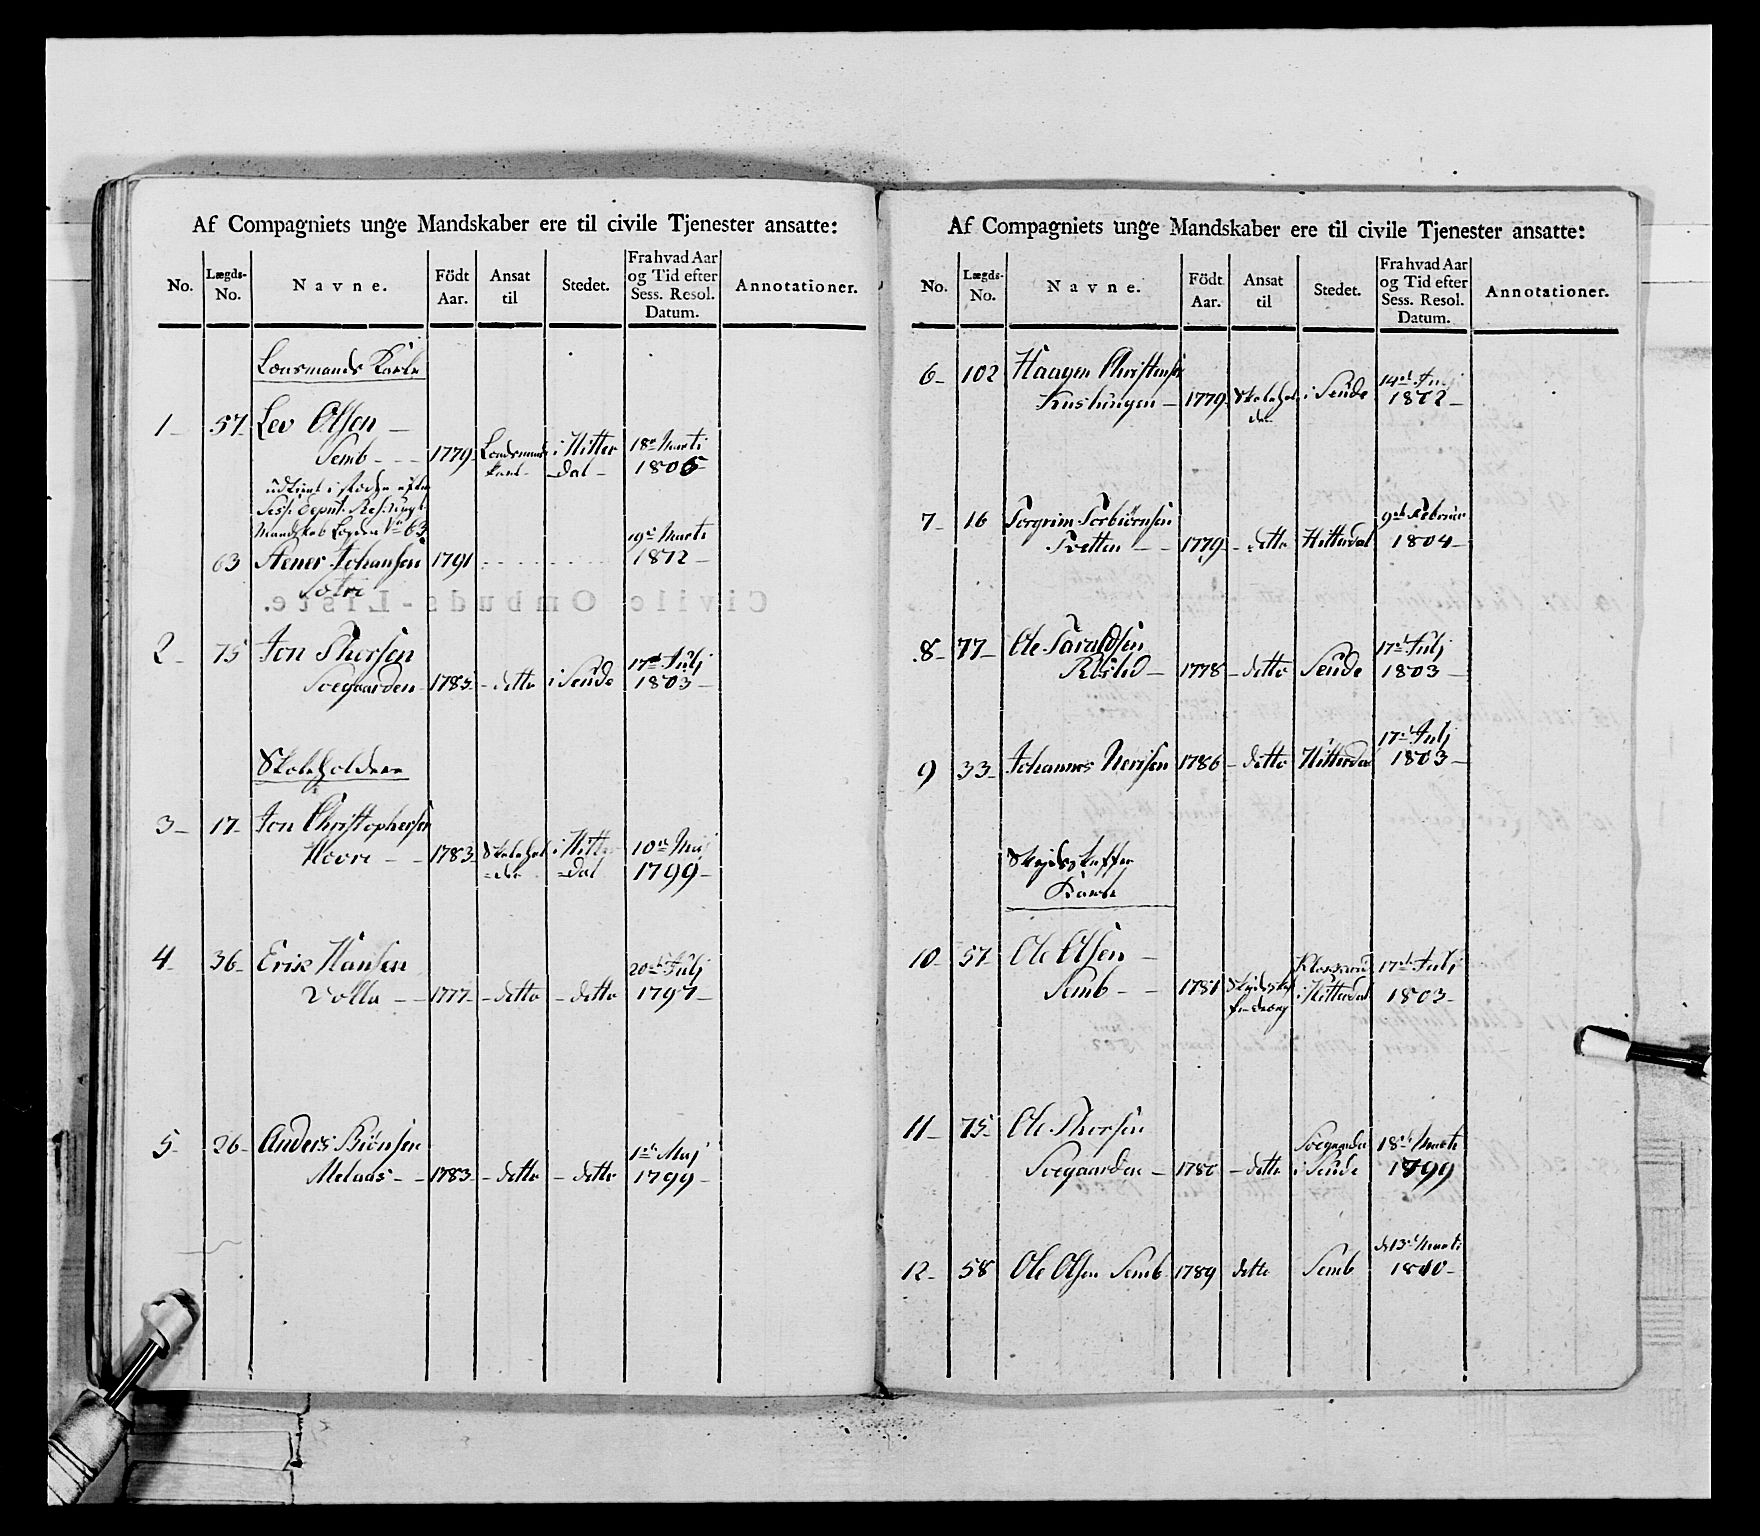 Af Compagniets unge Mandskaber ere til civile Tjenester ansatte:
No. Lægds-No. Navne. Födt Aar. Ansat til Stedet. Fra hvad Aar og Tid efter Sess. Resol. Datum. Annotationer.
Lensmands Karle
1 57 Lev Olsen
Semb 1779 Lensmands Karl i Hitterdal 18de Marti 1806
Mandskab
63 Stener Johansen 1791 19de Marti 1812
2 75 Jon Thorsen
Soegaarden 1785 detto i Seude 17de Julj 1803
Skoleholdere
3 17 Jon Christophersen
Hovre 1783 Skoleholder i Hitterdal 10de Maj 1799
4 36 Erik Hansen
Volla 1777 detto detto 20de Julj 1797
5 26 Anders Biönsen
Melaas 1783 detto detto 1ste Maj 1799
Civile Ombuds-Liste.
Af Compagniets unge Mandskaber ere til civile Tjenester ansatte:
No. Lægds-No. Navne. Födt Aar. Ansat til Stedet. Fra hvad Aar og Tid efter Sess. Resol. Datum. Annotationer.
6 102 Haagen Christensen
1779 Skoleholder i Seude 14de 1812
7 16 Torgrim Torbiörnsen
Tvetten 1779 detto Hitterdal 9de Februar 1804
8 77 Ole Taraldsen
1778 detto Seude 17de Julj 1803
9 33 Johannes Nerisen 1786 detto Hitterdal 17de Julj 1803
Skydsskaffer
Karle
10 57 Ole Olsen
Semb 1781 i Hitterdal 17de Julj 1803
11 75 Ole Thorsen
Soegaarden 1780 detto Soegaarden i Seude 18de Marti 1799
12 58 Ole Olsen Semb 1789 detto Semb d. 13de Marti 1810